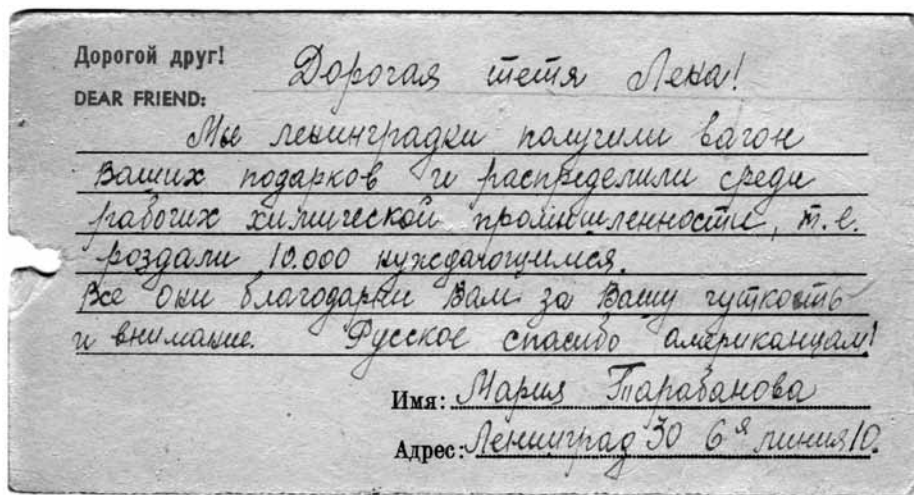 Дорогой друг!
DEAR FRIEND:
Дорогая тетя Лека!
Мы ленинградки получили вагон
Ваших подарков и распределили среди
рабочих химической промышленности, т.е.
роздали 10.000 нуждающимся.
Все они благодарны Вам за Вашу чуткость
и внимание. Русское спасибо американцам!
Имя: Мария Тарабанова
Адрес: Ленинград 30 6я линия 10.